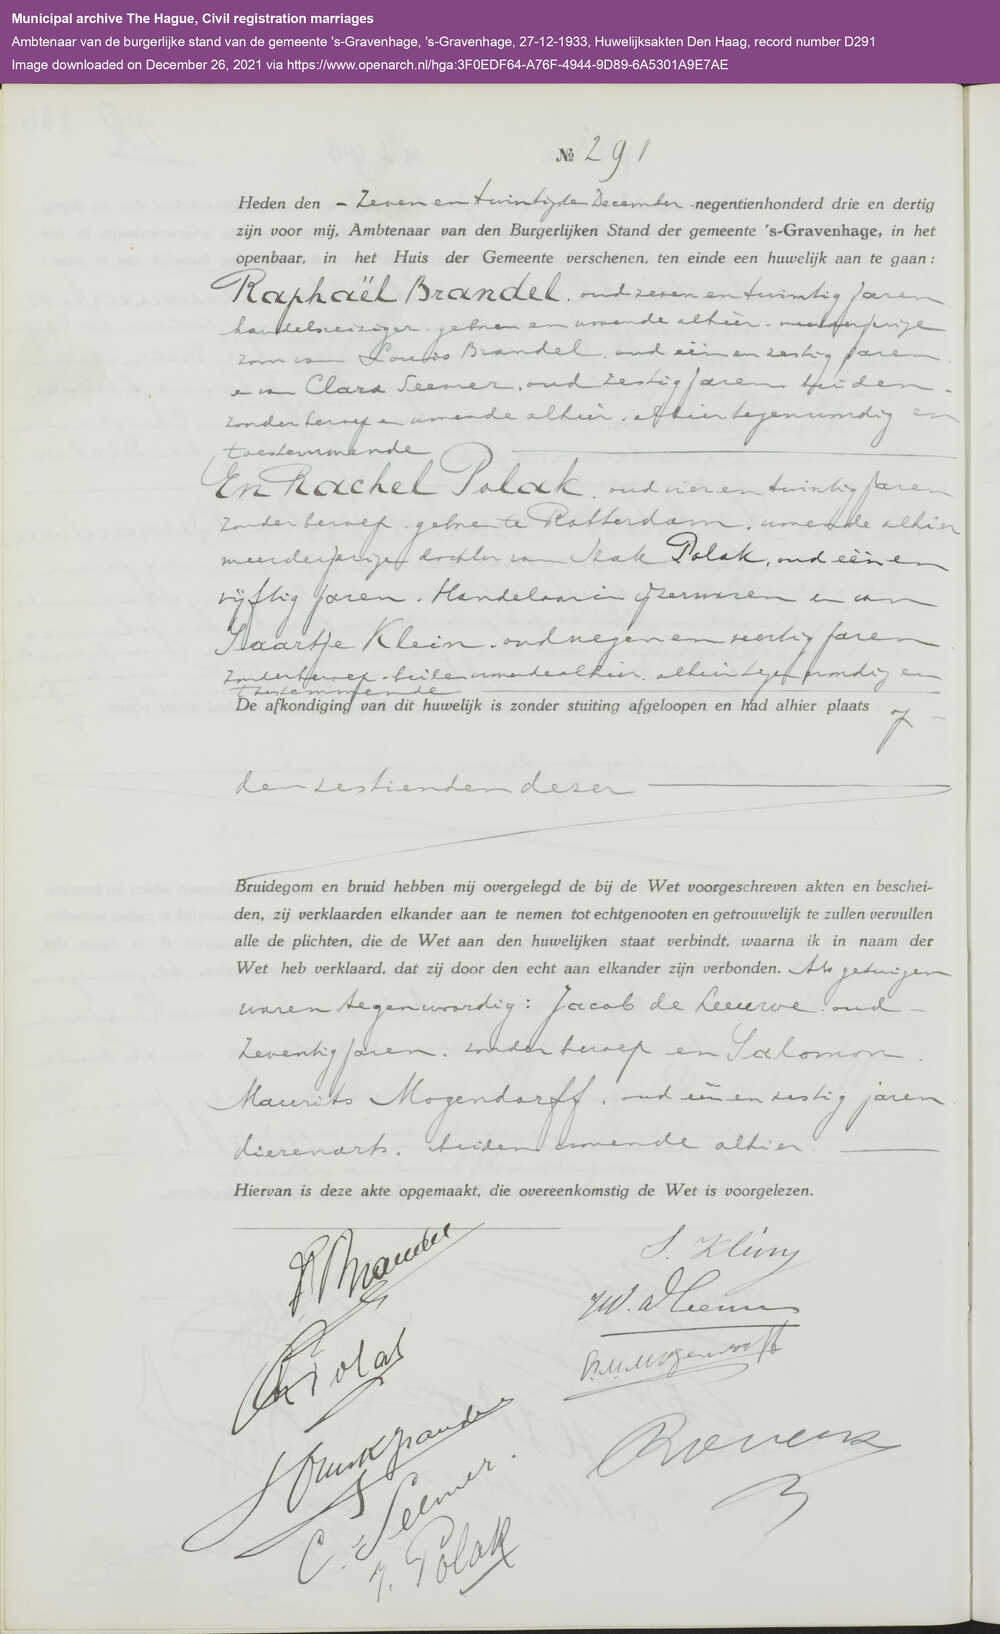 Municipal archive The Hague, Civil registration marriages
Ambtenaar van de burgerlijke stand van de gemeente 's-Gravenhage, 's-Gravenhage, 27-12-1933, Huwelijksakten Den Haag, record number D291
Image downloaded on December 26, 2021 via https://www.openarch.nl/hga:3F0EDF64-A76F-4944-9D89-6A5301A9E7AE
№ 291
Heden den - Zeven en twintigsten December negentienhonderd drie en dertig
zijn voor mij, Ambtenaar van den Burgerlijken Stand der gemeente 's-Gravenhage, in het
openbaar, in het Huis der Gemeente verschenen, ten einde een huwelijk aan te gaan:
Raphaël Brandel, oud zeven en twintig jaren
handelsreiziger, geboren en wonende alhier, meerderjarige
zoon van Louis Brandel, oud één en zestig jaren
en van Clara Seemer, oud zestig jaren beiden
zonder beroep en wonende alhier, alhier tegenwoordig en
toestemmende
En Rachel Polak, oud vier en twintig jaren
zonder beroep, geboren te Rotterdam, wonende alhier
meerderjarige dochter van Izak Polak, oud één en
vijftig jaren, Handelaar in ijzerwaren en van
Saartje Klein, oud negen en veertig jaren
zonder beroep, beiden wonende alhier, alhier tegenwoordig en
toestemmende
De afkondiging van dit huwelijk is zonder stuiting afgeloopen en had alhier plaats
den zestienden dezer
Bruidegom en bruid hebben mij overgelegd de bij de Wet voorgeschreven akten en beschei-
den, zij verklaarden elkander aan te nemen tot echtgenooten en getrouwelijk te zullen vervullen
alle de plichten, die de Wet aan den huwelijken staat verbindt, waarna ik in naam der
Wet heb verklaard, dat zij door den echt aan elkander zijn verbonden. Als getuigen
waren tegenwoordig: Jacob de Leeuwe, oud
Zeventig jaren, zonder beroep en Salomon
Maurits Mogendorff, oud één en zestig jaren
dierenarts, beiden wonende alhier.
Hiervan is deze akte opgemaakt, die overeenkomstig de Wet is voorgelezen.
R Brandel
R Polak
Brandel
C. Seemer.
I. Polak
S. Klein
Mogendorff